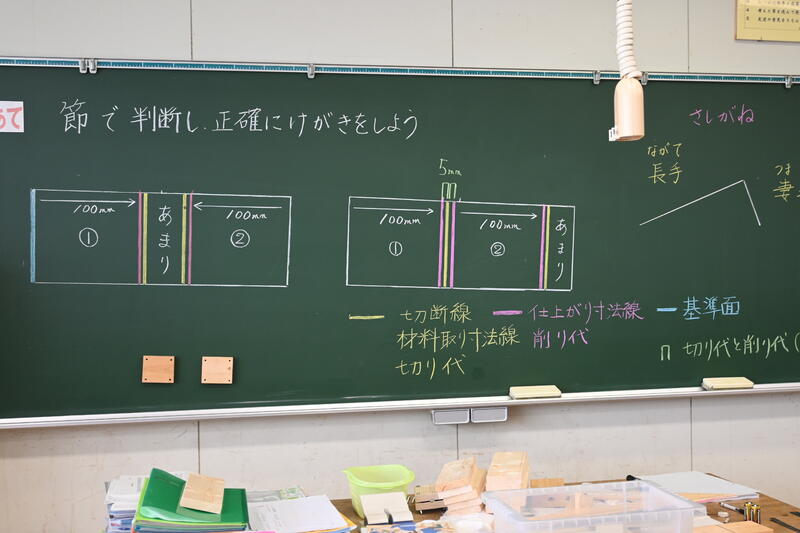 節で判断し、正確にけがきをしよう
さしがね
ながて
長手
妻
5mm
100mm
①
あまり
100mm
②
100mm
①
100mm
②
あまり
切断線
仕上がり寸法線
基準面
材料取り寸法線
削り代
切り代と削り代(
切り代